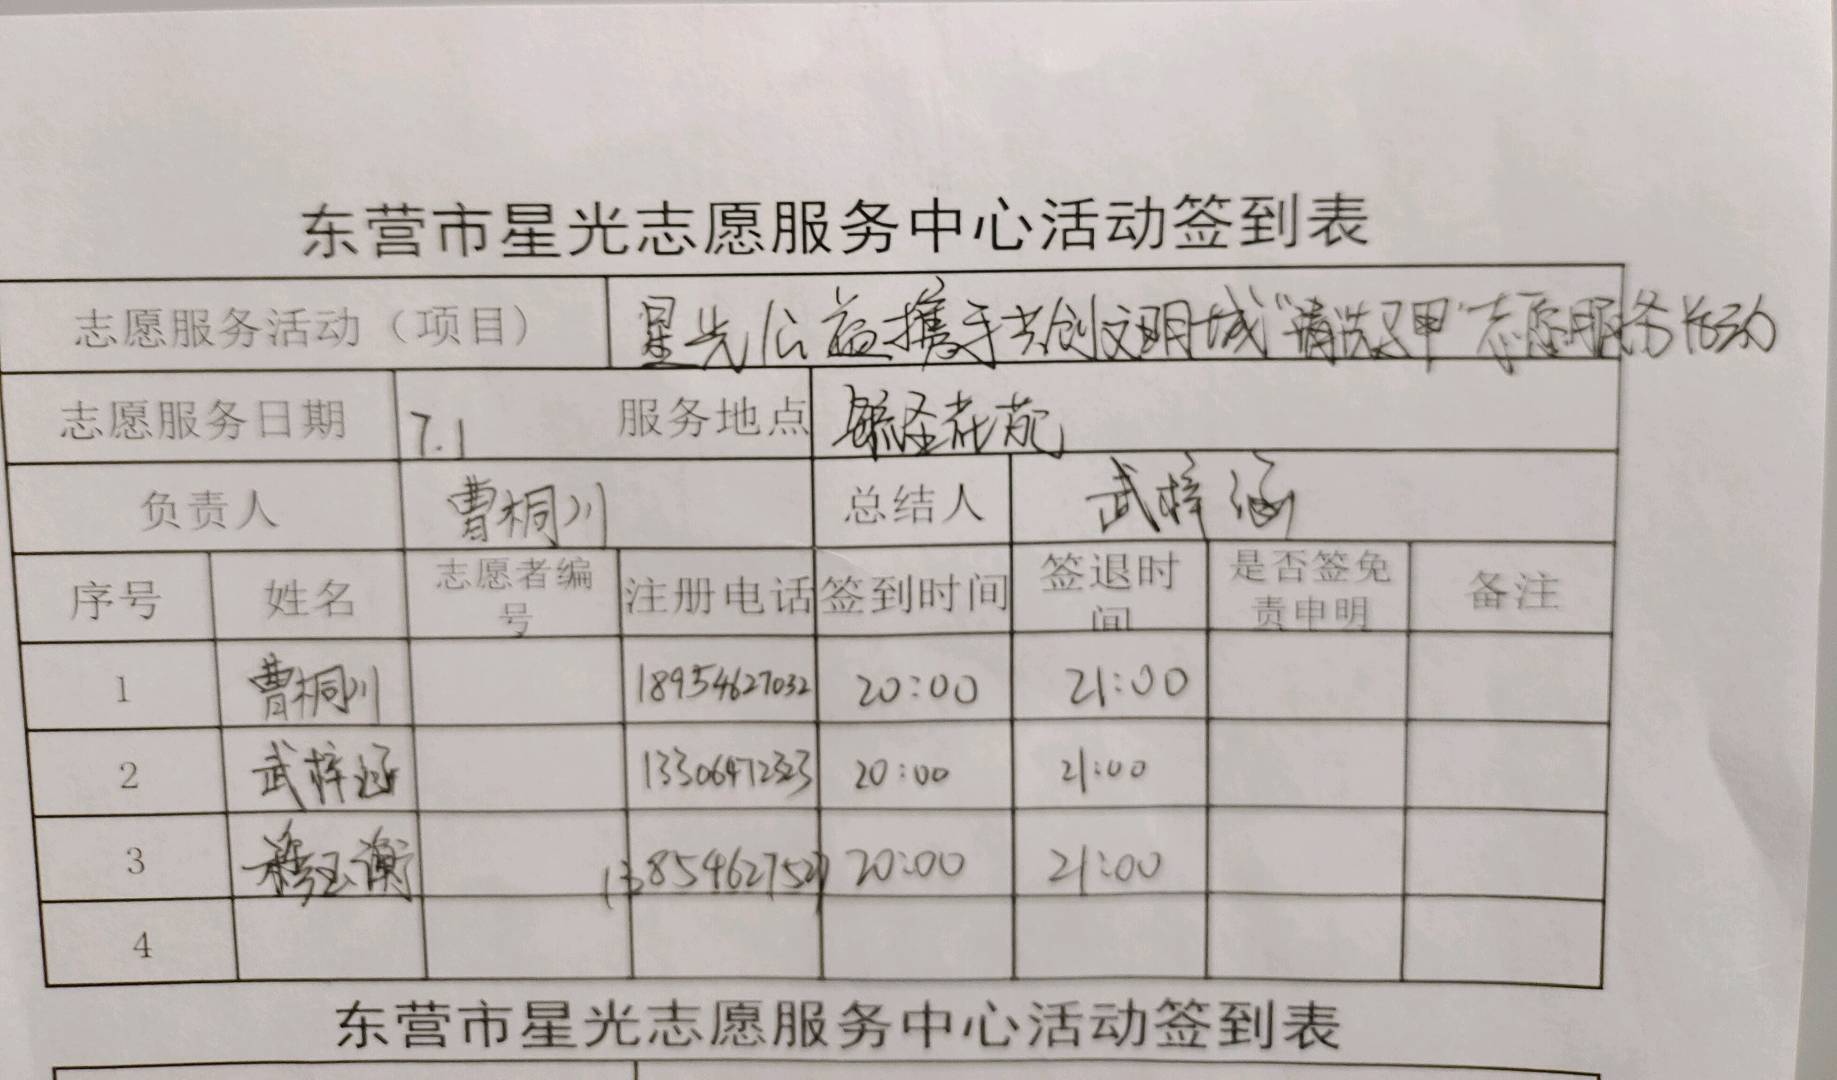 东营市星光志愿服务中心活动签到表
志愿服务活动（项目） 星光公益携手共创文明城"清洗马甲"志愿服务活动
志愿服务日期 7.1 服务地点 花苑
负责人 曹桐川 总结人 武梓涵
序号 姓名 志愿者编号 注册电话 签到时间 签退时间 是否签免责申明 备注
1 曹桐川 18954627032 20:00 21:00
2 武梓涵 13306472323 20:00 21:00
3 20:00 21:00
4
东营市星光志愿服务中心活动签到表